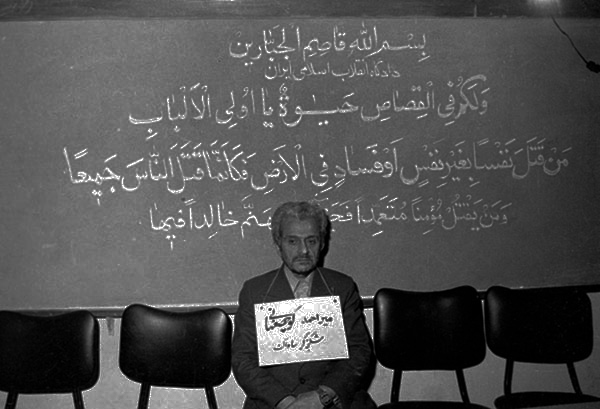 بِسْمِ اللهِ قاصِمِ الْجَبّارین
دادگاه انقلاب اسلامی ایران
وَلَکُمْ فِی الْقِصَاصِ حَیٰوةٌ یا اُولِی الْاَلْبابِ
مَنْ قَتَلَ نَفْساً بِغَیْرِ نَفْسٍ اَوْ فَسادٍ فِی الْاَرْضِ فَکَاَنَّما قَتَلَ النّاسَ جَمیعاً
وَمَنْ یَقْتُلْ مُؤْمِناً مُتَعَمِّداً خالِداً فیها
میراحمد
شکنجه‌گر ساواک